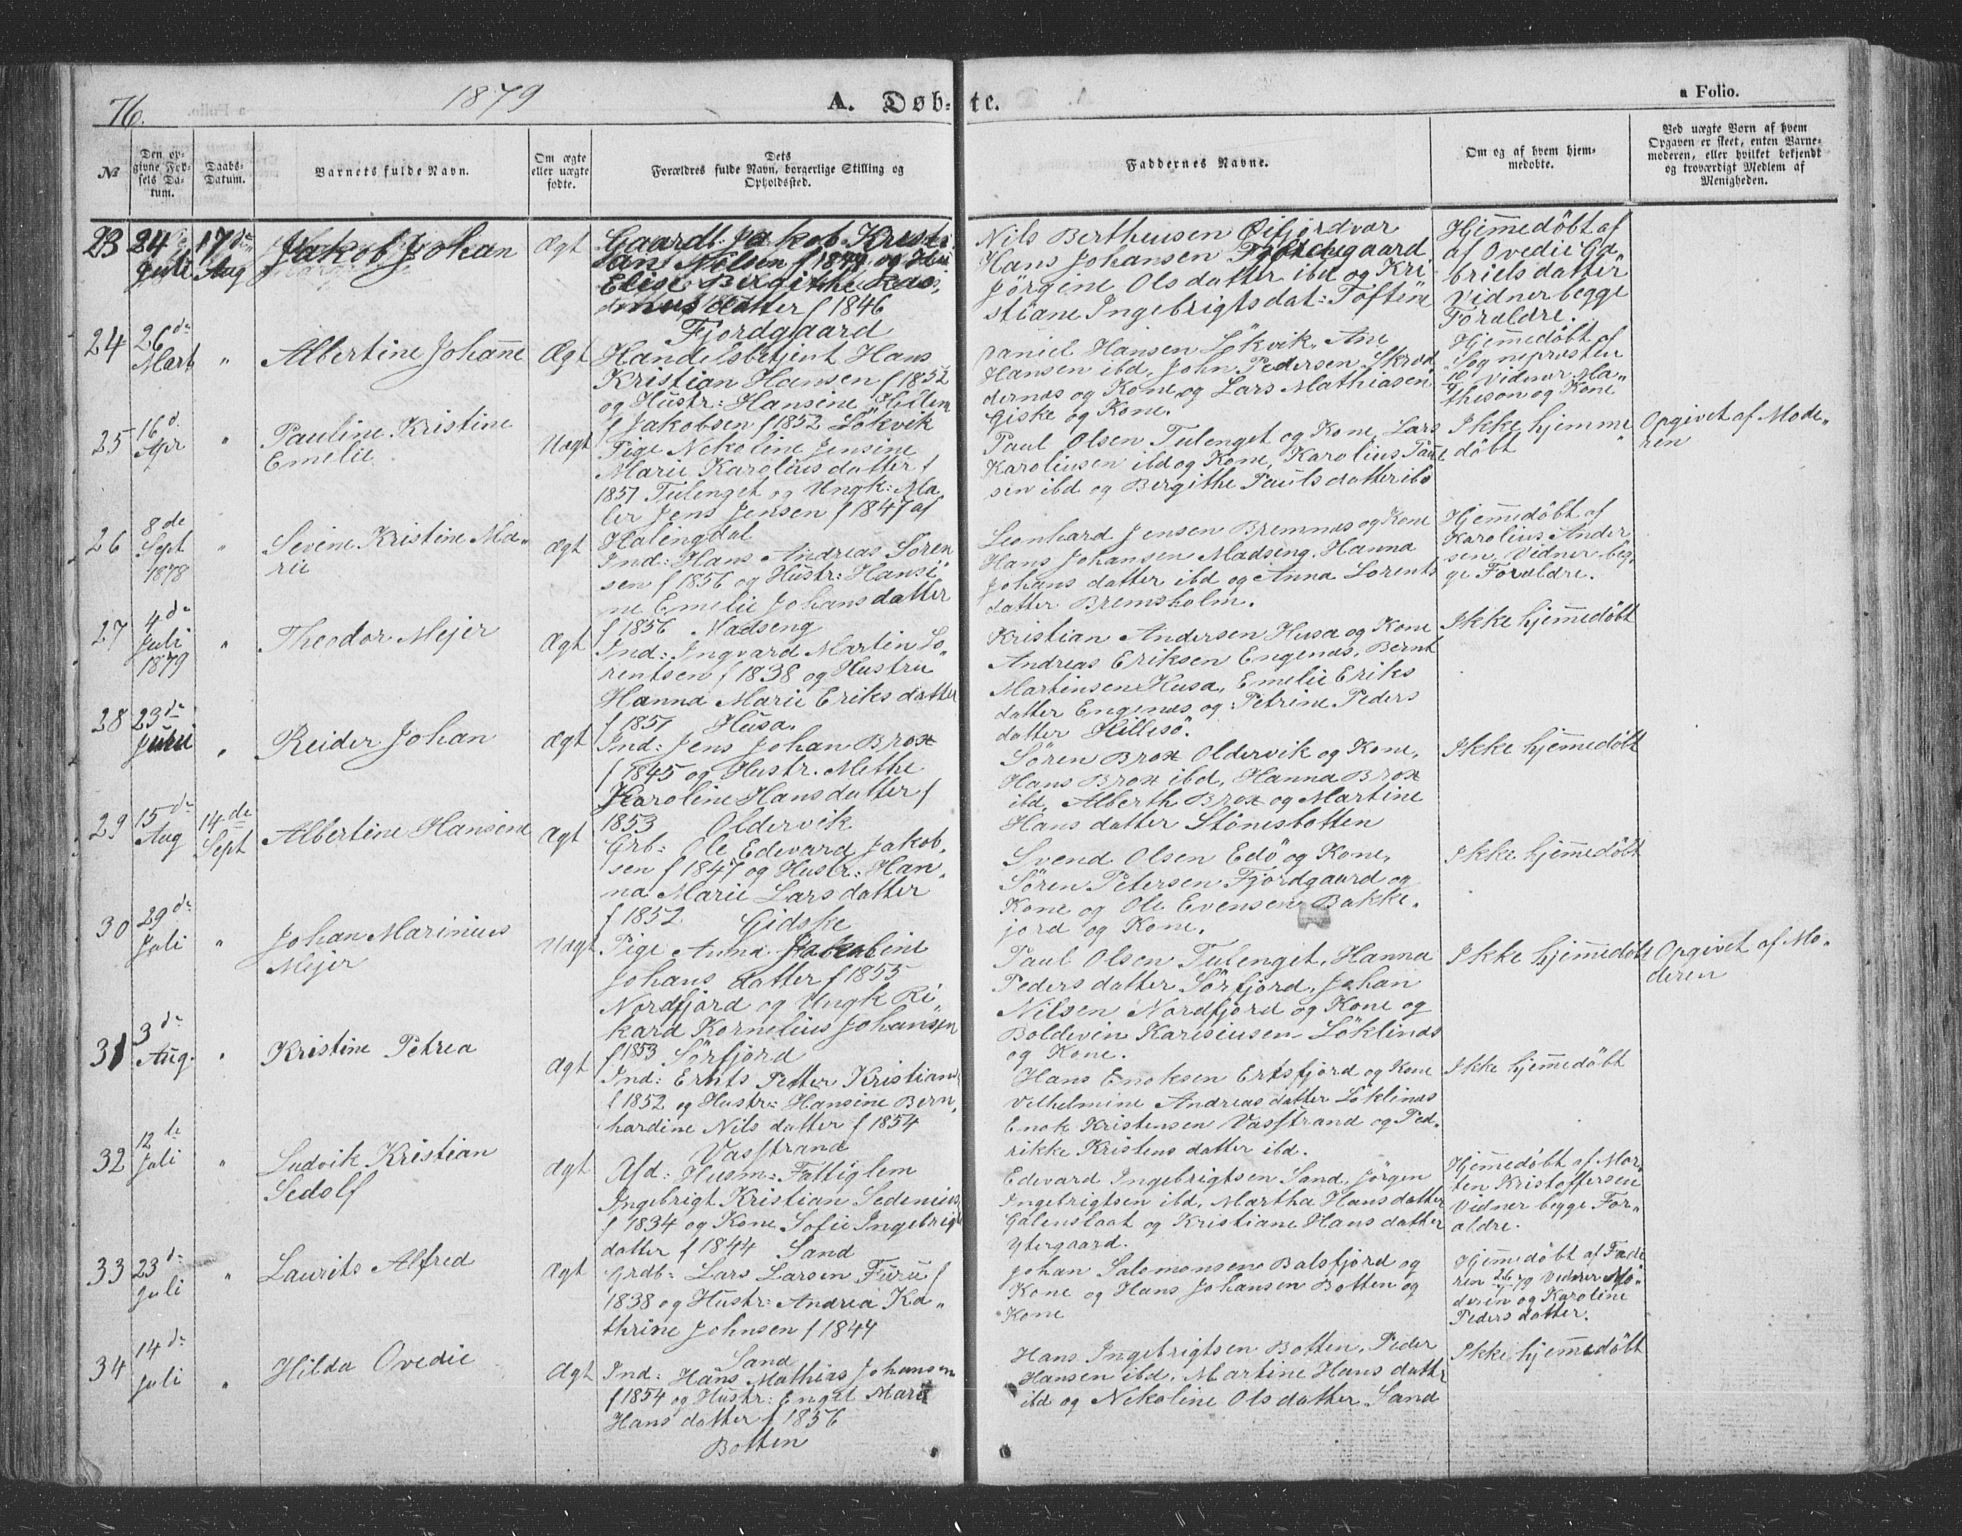 76.
1879
A. Døb-
te.
a Folio.
№
Den op-
givne Fød-
sels Da-
tum.
Daabs-
Datum.
Barnets fulde Navn.
Om ægte
eller uægte
fødte.
Dets
Forældres fulde Navn, borgerlige Stilling og
Opholdssted.
Faddernes Navne.
Om og af hvem hjem-
medøbte.
Ved uægte Børn af hvem
Opgaven er skeet, enten Barne-
moderen, eller hvilket bekjendt
og troværdigt Medlem af
Menigheden.
23
24
Juli
17de
Aug
Jakob Johan
Ægt
Gaardb. Jakob Kristi
ans Nilsen
Elise Bergitthe Ras
musdatter f 1846
Fjordgaard
Nils Bertheusen Øifjordvær
Hans Johansen Fjordgaard
Jørgene Olsdatter ibd og Kri
stiane Ingebrigtsdat: Toftene
Hjemmedøbt af
af Ovedie Ga
brielsdatter
Vidner begge
Forældre.
24
26de
Marts
"
Albertine Johanne
Ægt
Handelsbetjent Hans
Kristian Hansen f 1852
og Hustr: Hansine Hellene
Jakobsen f 1852 Lökvik
Daniel Hansen Lökvik, Ane
Hansen ibd, John Pedersen Skrod
dernæs og Kone og Lars Mathiasen
Giske og Kone.
Hjemmedøbt af
Sognepræsten
Vidner Ma-
theson og Kone
25
16d.
Apr
"
Pauline Kristine
Emelie
Uægt
Pige Nekoline Jensine
Marie Karoliusdatter f
1857 Tulenget og Ungk: Ma
ler Jens Jensen f 1847 af
Halingdal
Paul Olsen Tulenget og Kone, Lars
Karoliusen ibd og Kone, Karolius Paul
sen ibd og Bergithe Paulsdatter ibd
Ikke hjemme
døbt
Opgivet af Mode-
ren
26
8de
Sept
1878
"
Sevine Kristine Ma-
rie
Ægt
Ind: Hans Andreas Sören
sen f 1856 og Hustr: Hansi
ne Emelie Johansdatter
f 1856 Madseng
Leonhard Jensen Bremnes og Kone
Hans Johansen Madseng, Hanna
Johansdatter ibd og Anna Lorents
datter Bremsholm.
Hjemmedøbt af
Karolius Ander
sen, Vidner beg
ge Forældre.
27
4de
Juli
1879
"
Theodor Mejer
Ægt
Ind: Ingvard Martin Lo-
rentsen f 1838 og Hustru
Hanna Marie Eriksdatter
f 1857 Husa.
Kristian Andersen Husa og Kone
Andreas Eriksen Engenes, Bernt
Martinsen Husa, Emelie Eriks
datter Engenes og Petrine Peders
datter Hillesö.
Ikke hjemmedøbt
28
23de
Juni
"
Reider Johan
Ægt
Ind: Jens Johan Brox
f 1845 og Hustr. Methe
Karoline Hansdatter f
1853 Oldervik
Sören Brox Oldervik og Kone,
Hans Brox ibd, Hanna Brox
ibd, Alberth Brox og Martine
Hansdatter Stönesbotten
Ikke hjemmedøbt
29
15de
Aug
14de
Sept
Albertine Hansine
Ægt
Grb: Ole Edevard Jakob-
sen f 1847 og Hustr: Han-
na Marie Larsdatter
f 1852 Gidske
Svend Olsen Edö og Kone,
Sören Petersen Fjordgaard og
Kone og Ole Evensen Bakke-
jord og Kone.
Ikke hjemmedøbt
30
29de
Juli
"
Johan Marinius
Mejer
Uægt
Pige Anna Jakobine
Johansdatter f 1855
Nordfjord og Ungk Ri-
kard Kornelius Johansen
f 1853 Sörfjord
Paul Olsen Tulenget, Hanna
Pedersdatter Sörfjord, Johan
Nilsen Nordfjord og Kone og
Boldevin Kareliusen Löklines
og Kone.
Ikke hjemmedøbt
Opgivet af Mo-
deren
31
3de
Aug.
"
Kristine Petrea
Ægt
Ind: Ernts Petter Kristians
f 1852 og Hustr: Hansine Bern,
hardine Nilsdatter f 1854
Vasstrand
Hans Enoksen Ersfjord og Kone
Vilhelmine Andreasdatter Löklines
Enok Kristensen Vasstrand og Ped-
rikke Kristensdatter ibd.
Ikke hjemmedøbt
32
12te
Juli
"
Ludvik Kristian
Sedolf
Ægt
Afd: Husm: Fattiglem
Ingebrigt Kristian Sedenius
f 1834 og Kone Sofie Ingebrigt
datter f 1844 Sand
Edevard Ingebrigtsen Sand, Jörgen
Ingebrigtsen ibd, Martha Hansdatter
Galenslaat og Kristiane Hansdatter
Ytergaard.
Hjemmedøbt af Mor-
ten Kristoffersen
Vidner begge For-
ældre.
33
23de
Juli
"
Laurits Alfred
Ægt
Grdb: Lars Larsen Furu f
1838 og Hustr: Andrea Ka-
thrine Johnsen f 1844
Sand
Johan Salomonsen Balsfjord og
Kone og Hans Johansen Botten og
Kone
Hjemmedøbt af Fade
ren 26/7 79 Vidner Mo-
deren og Karoline
Pedersdatter.
34
14de
Juli
"
Hilda Ovedie
Ægt
Ind: Hans Mathias Johansen
f 1854 og Hustr: Engel Marie
Hansdatter f 1856
Botten
Hans Ingebrigtsen Botten, Peder
Hansen ibd, Martine Hansdattr
ibd og Nekoline Olsdatter Sand
Ikke hjemmedøbt